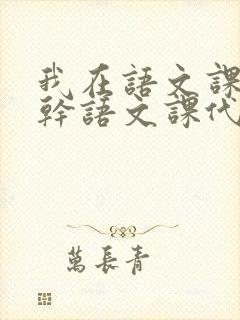 我在語文課
幹語文課代
萬長青